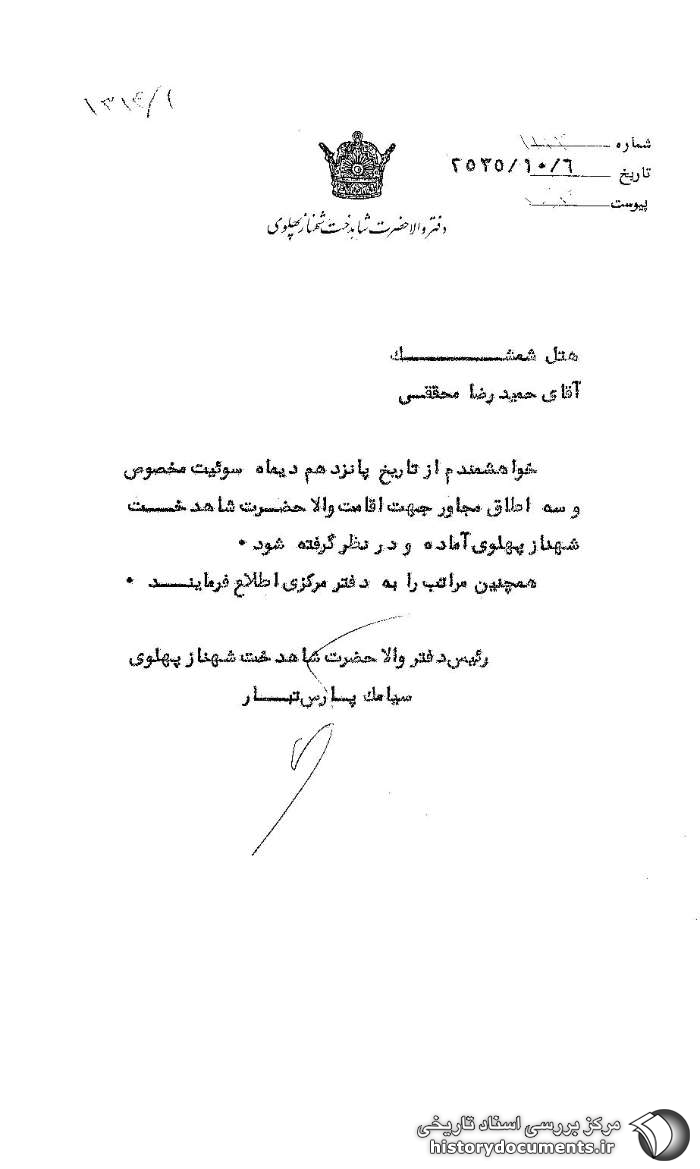 ۱۳۱۴/۱
شماره
تاریخ ۲۵۳۵/۱۰/۶
پیوست
دفتر والاحضرت شاهدخت شهناز پهلوی
هتل شمشك
آقای حمیدرضا محققی
خواهشمندم از تاریخ پانزدهم دیماه سوئیت مخصوص
و سه اطاق مجاور جهت اقامت والاحضرت شاهدخت
شهناز پهلوی آماده و در نظر گرفته شود ٠
همچنین مراتب را به دفتر مرکزی اطلاع فرمایند ٠
رئیس دفتر والاحضرت شاهدخت شهناز پهلوی
سیامك پارس تبار
مرکز بررسی اسناد تاریخی
historydocuments.ir